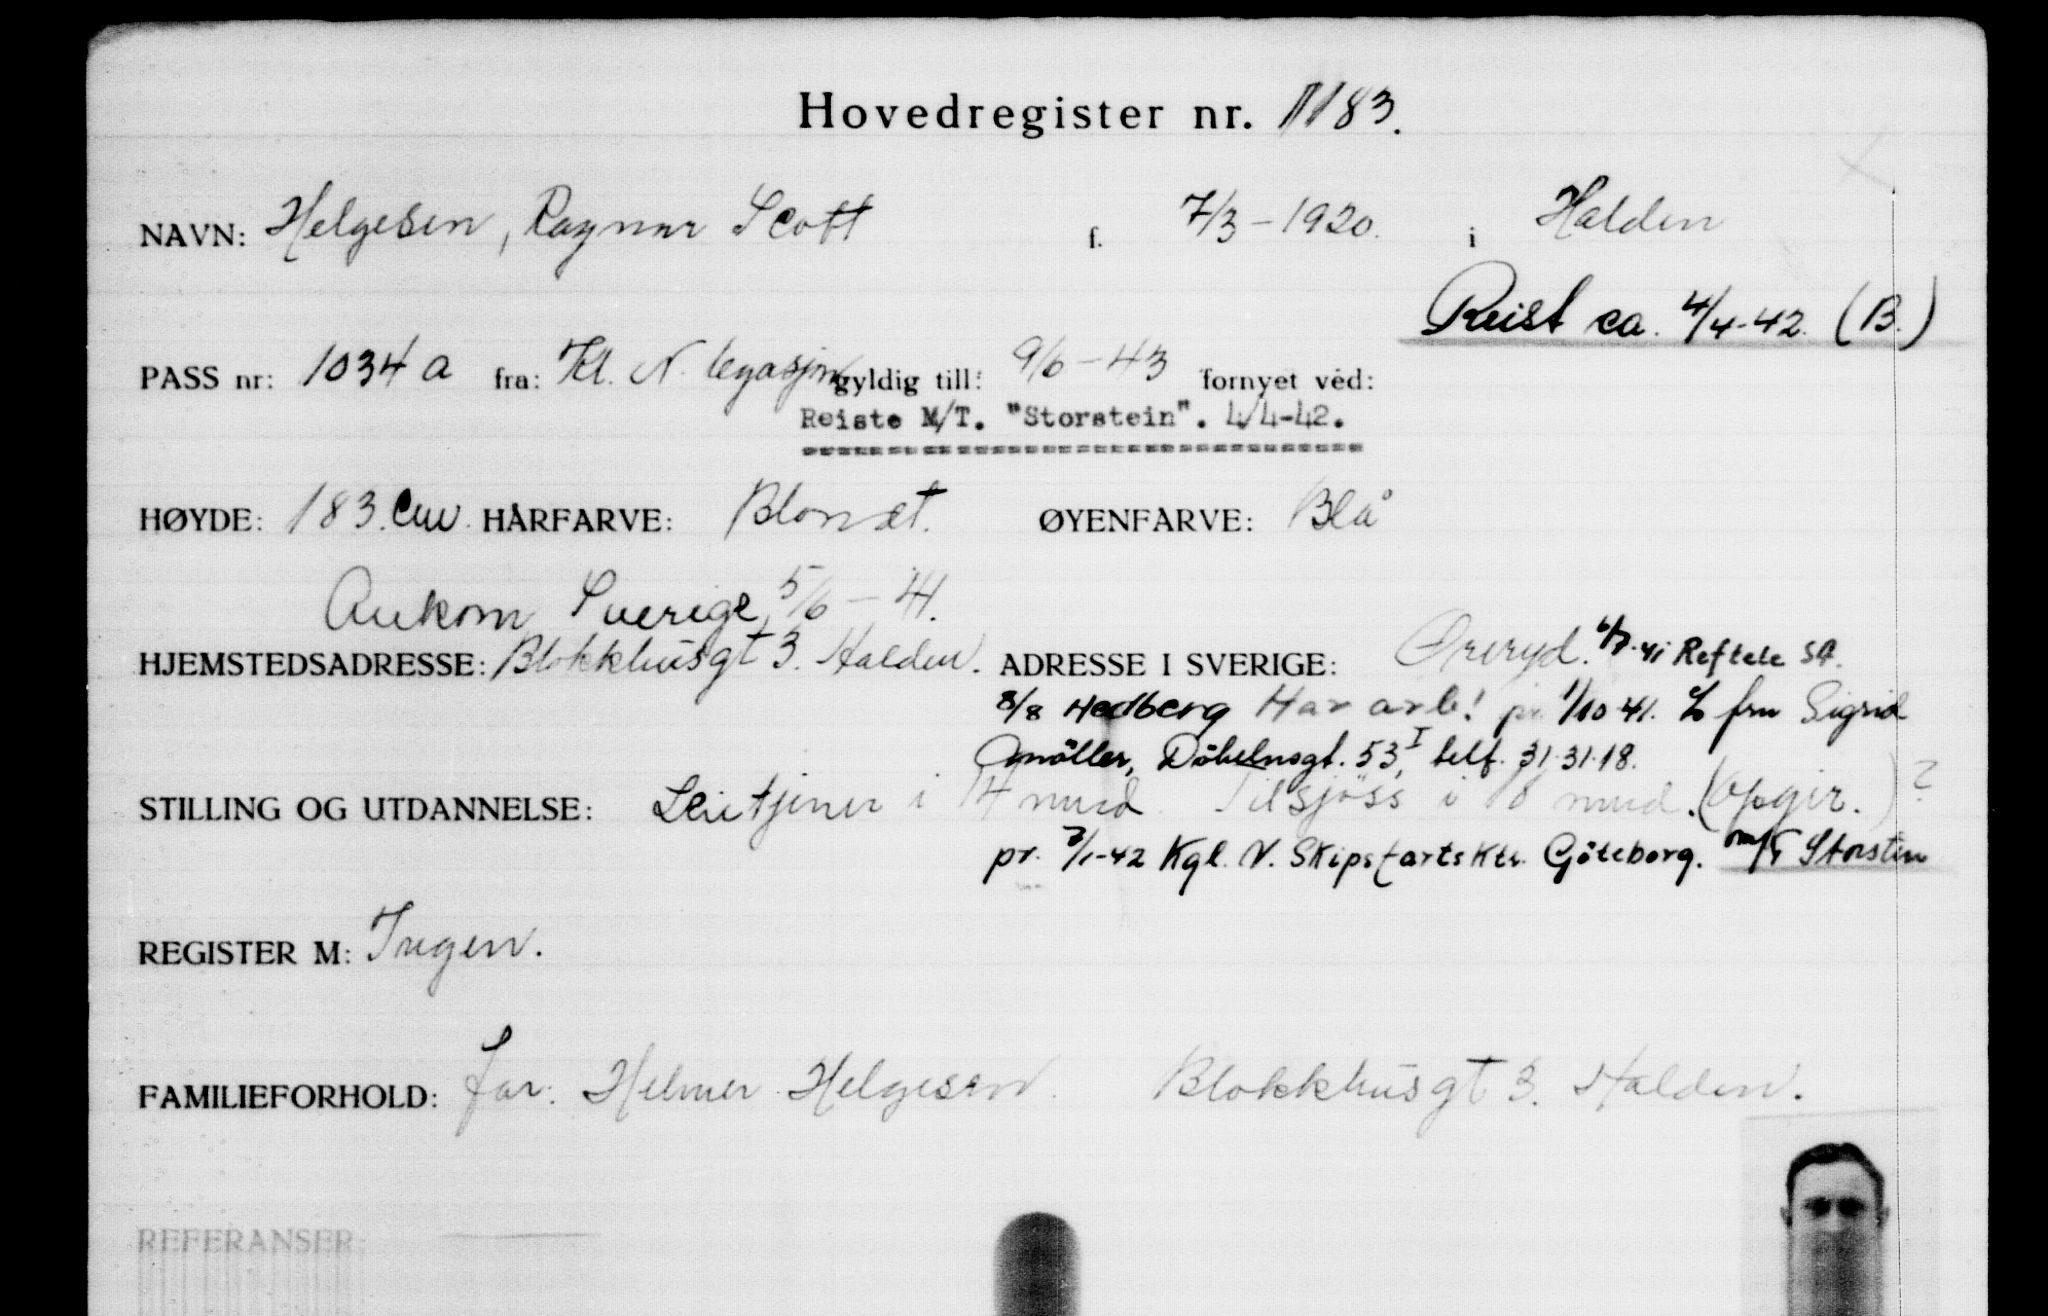 Hovedregister nr. 1183.
NAVN: Helgesen, Ragnar Scott f. 7/3-1920. i Halden
Reist ca. 4/4-42. (B.)
PASS nr: 1034 a fra: Kl. N. legasjon gyldig till: 9/6-43 fornyet ved:
Reiste M/T. "Storstein". 4/4-42.
HØYDE: 183. cm. HÅRFARVE: Blondt. ØYENFARVE: Blå
Ankom Sverige, 5/6-41.
HJEMSTEDSADRESSE: Blokkhusgt 3. Halden. ADRESSE I SVERIGE: Öreryd. 41 Reftele
8/8 Hedberg Har arb! pr. 1/10 41. fru Sigrid
Döbelnsgt. 53 I, telf. 31.31.18.
STILLING OG UTDANNELSE: i 14 mnd. Tilsjöss i 18 mnd. (Opgir.) ?
pr. 7/1-42 Kgl. N. Skipsfartsktr. Göteborg. m/T Storsten
REGISTER M: Ingen.
FAMILIEFORHOLD: far: Helmer Helgesen. Blokkhusgt 3. Halden.
REFERANSER: